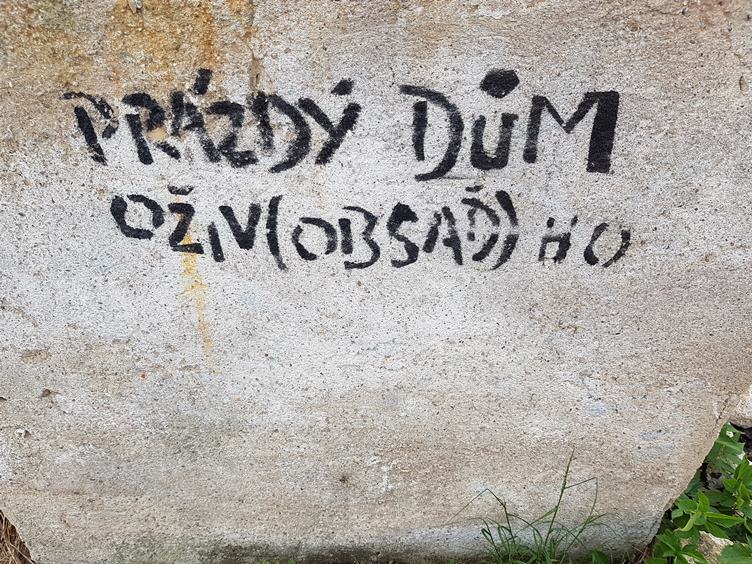 PRÁZDÝ DŮM
OŽIV(OBSAĎ) HO